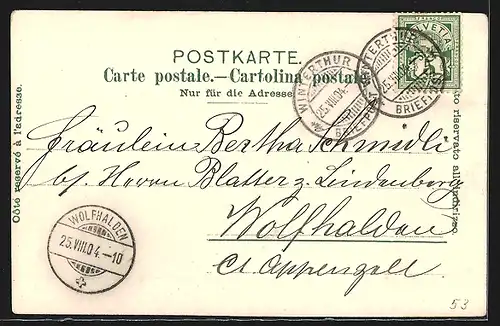 POSTKARTE.
Carte postale.—Cartolina postale.
Nur für die Adresse
Côté réservé à l'adresse.
Lato riservato all'indirizzo.
HELVETIA
WINTERTHUR
25.VIII.04
BRIEFEXP.
WINTERTHUR
25.VIII.04
BRIEFEXP.
Fräulein Bertha Schmidli
bs. Herrn Blatter z. Lindenberg
Wolfhalden
Ct. Appenzell
WOLFHALDEN
25.VIII.04.-10
53